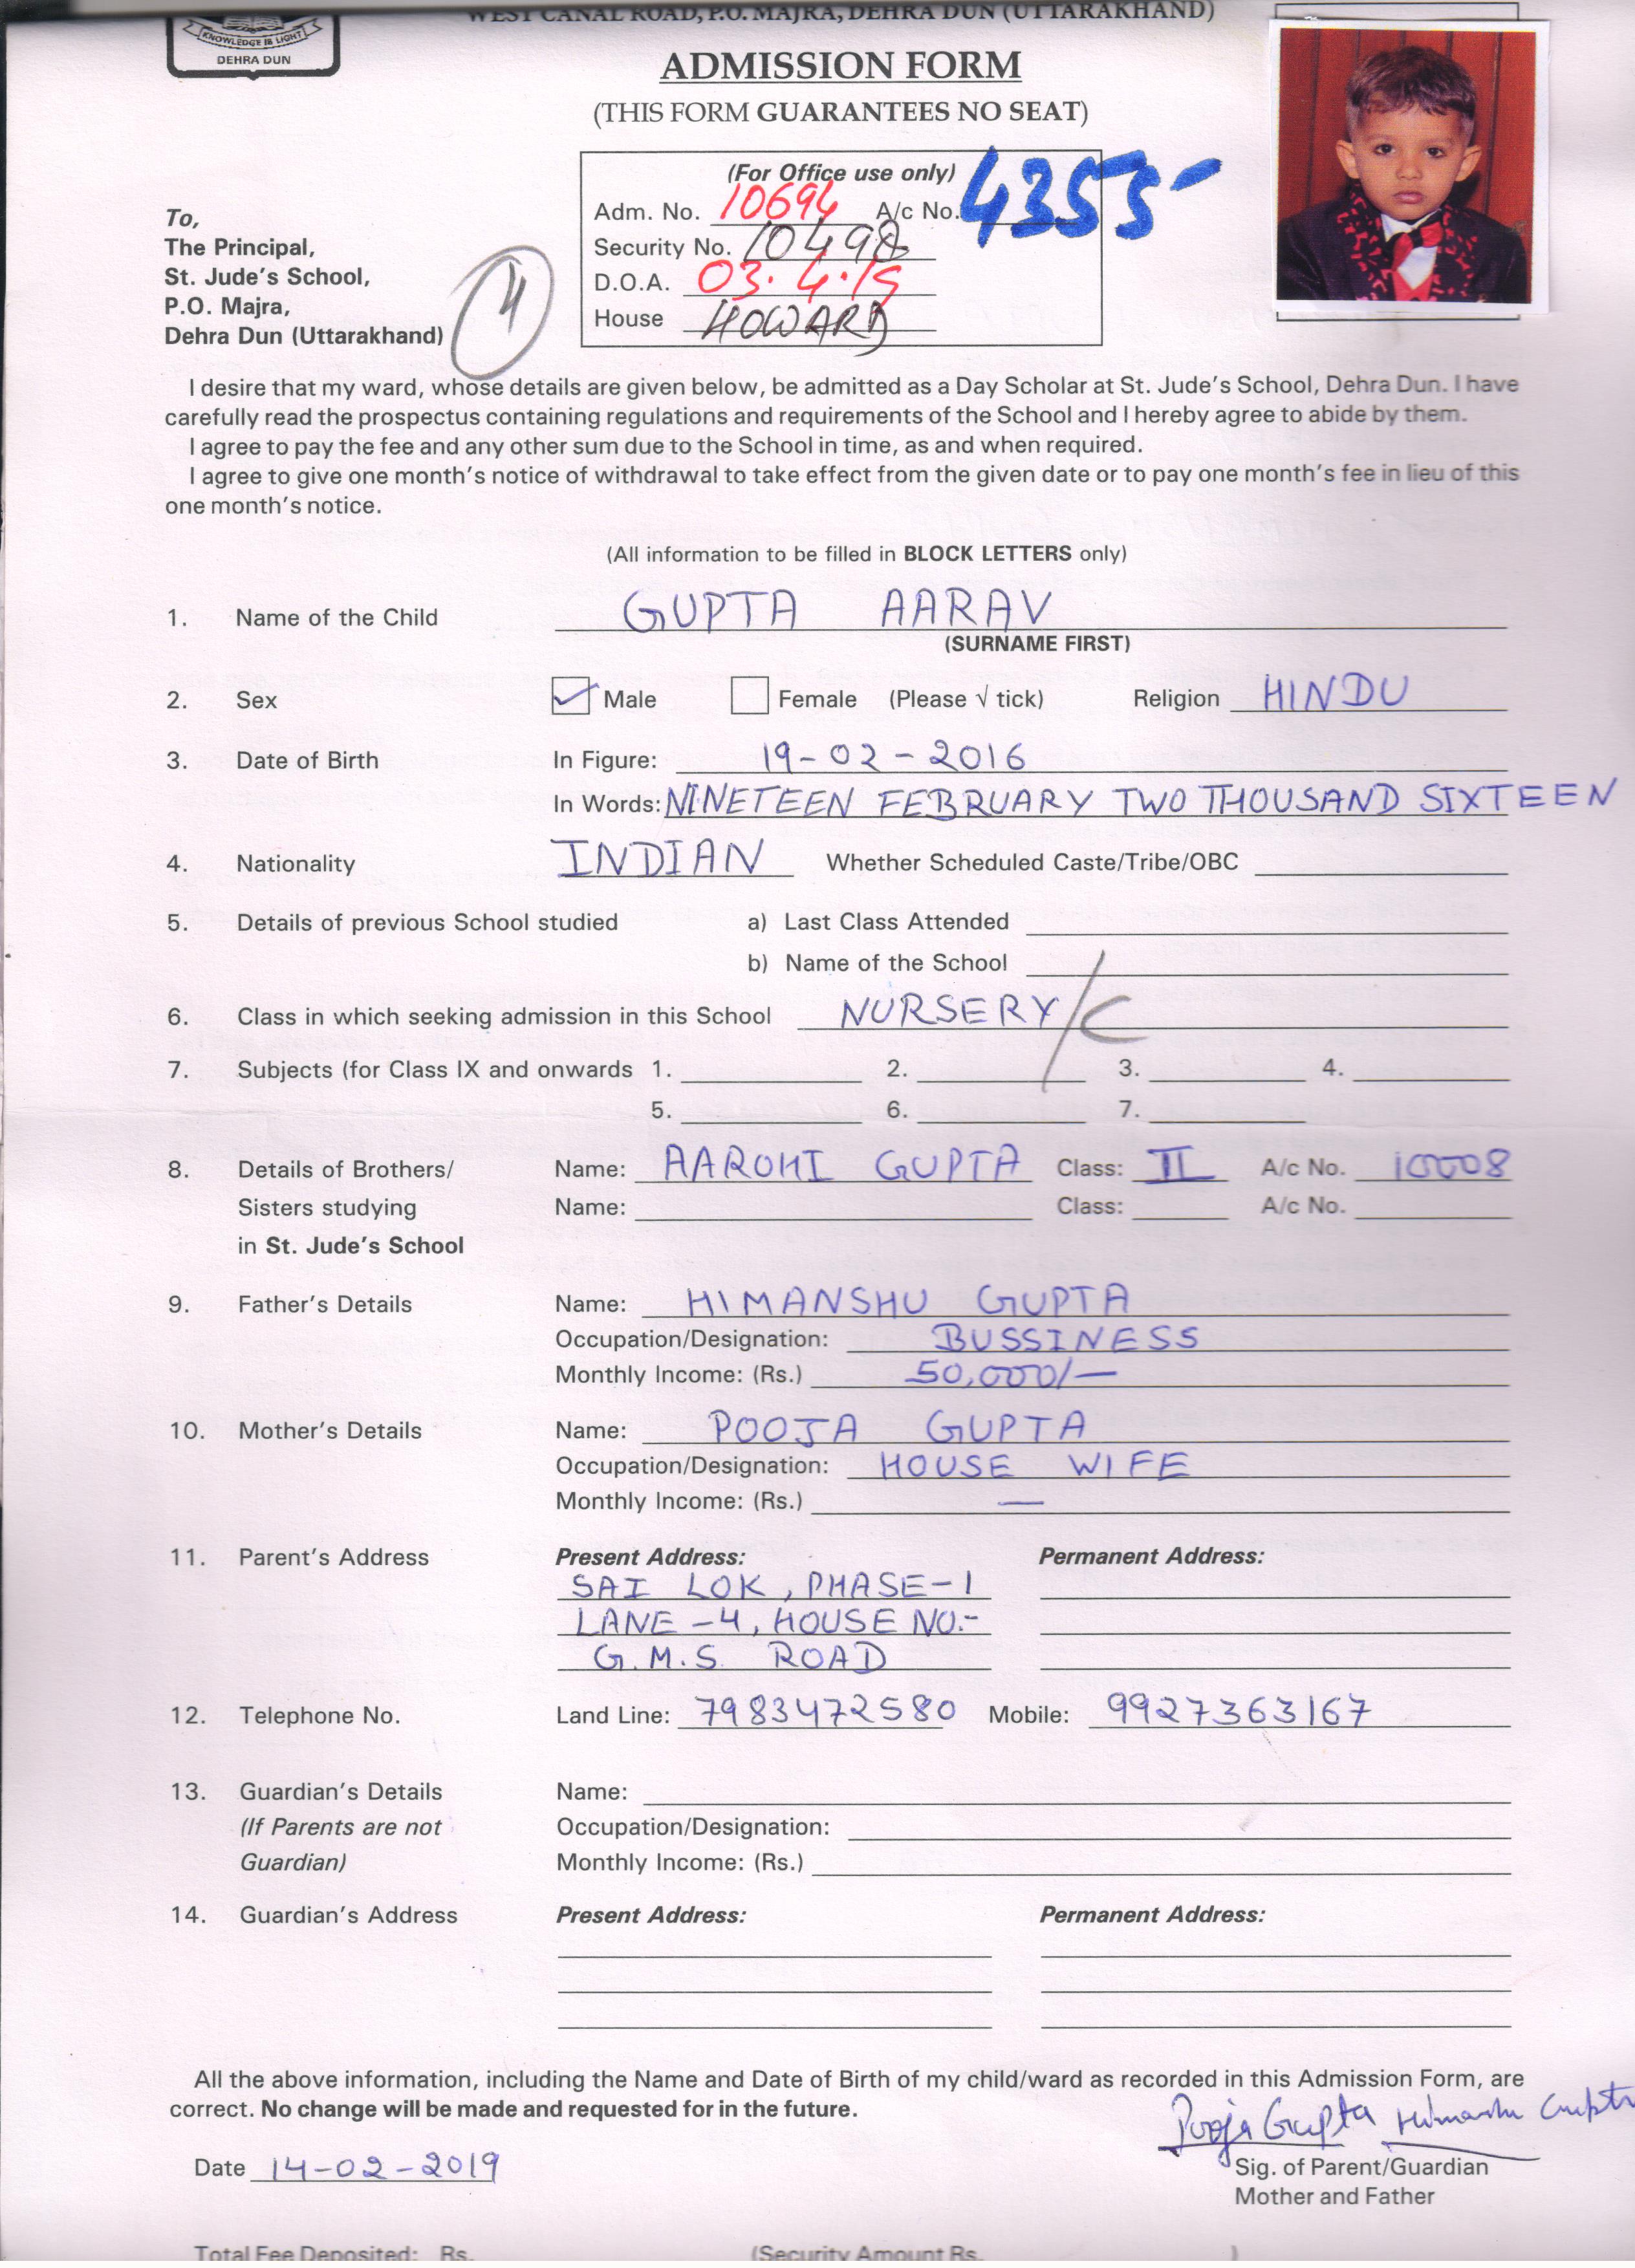 WEST CANAL ROAD, P.O. MAJRA, DEHRA DUN (UTTARAKHAND)
KNOWLEDGE IS LIGHT
DEHRA DUN
ADMISSION FORM
(THIS FORM GUARANTEES NO SEAT)
(For Office use only)
Adm. No. 10694 A/c No. 4355
Security No. 10498
D.O.A. 03.4.19
House HOWARD
To,
The Principal,
St. Jude's School,
P.O. Majra,
Dehra Dun (Uttarakhand)
4
I desire that my ward, whose details are given below, be admitted as a Day Scholar at St. Jude's School, Dehra Dun. I have
carefully read the prospectus containing regulations and requirements of the School and I hereby agree to abide by them.
I agree to pay the fee and any other sum due to the School in time, as and when required.
I agree to give one month's notice of withdrawal to take effect from the given date or to pay one month's fee in lieu of this
one month's notice.
(All information to be filled in BLOCK LETTERS only)
1. Name of the Child GUPTA AARAV
(SURNAME FIRST)
2. Sex Male Female (Please √ tick) Religion HINDU
3. Date of Birth In Figure: 19-02-2016
In Words: NINETEEN FEBRUARY TWO THOUSAND SIXTEEN
4. Nationality INDIAN Whether Scheduled Caste/Tribe/OBC
5. Details of previous School studied a) Last Class Attended
b) Name of the School
6. Class in which seeking admission in this School NURSERY/C
7. Subjects (for Class IX and onwards 1. 2. 3. 4.
5. 6. 7.
8. Details of Brothers/ Name: AAROHI GUPTA Class: II A/c No. 10008
Sisters studying Name: Class: A/c No.
in St. Jude's School
9. Father's Details Name: HIMANSHU GUPTA
Occupation/Designation: BUSSINESS
Monthly Income: (Rs.) 50,000/-
10. Mother's Details Name: POOJA GUPTA
Occupation/Designation: HOUSE WIFE
Monthly Income: (Rs.) —
11. Parent's Address Present Address: Permanent Address:
SAI LOK, PHASE-1
LANE-4, HOUSE NO:-
G.M.S. ROAD
12. Telephone No. Land Line: 7983472580 Mobile: 9927363167
13. Guardian's Details Name:
(If Parents are not Occupation/Designation:
Guardian) Monthly Income: (Rs.)
14. Guardian's Address Present Address: Permanent Address:
All the above information, including the Name and Date of Birth of my child/ward as recorded in this Admission Form, are
correct. No change will be made and requested for in the future.
Pooja Gupta Himanshu Gupta
Date 14-02-2019 Sig. of Parent/Guardian
Mother and Father
Total Fee Deposited: Rs. (Security Amount Rs. )